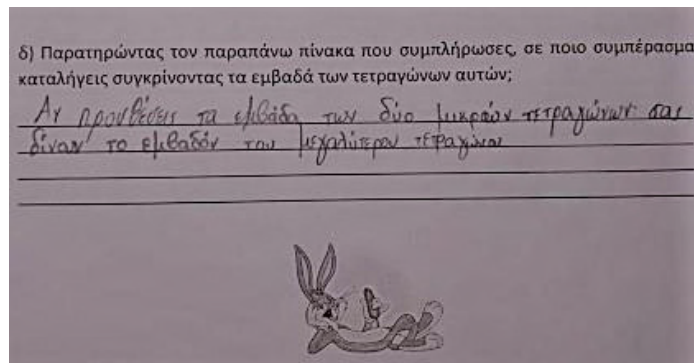 δ) Παρατηρώντας τον παραπάνω πίνακα που συμπλήρωσες, σε ποιο συμπέρασμα
καταλήγεις συγκρίνοντας τα εμβαδά των τετραγώνων αυτών;
Αν προσθέσεις τα εμβάδα των δύο μικρών τετραγώνων σας
δίναν το εμβαδόν του μεγαλύτερου τετραγώνου